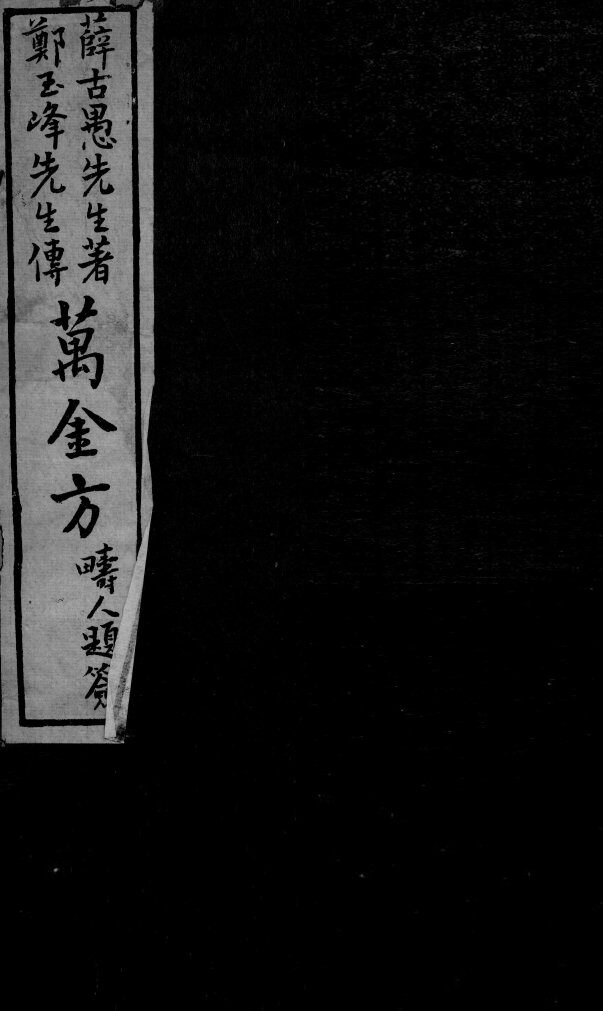 薛古愚先生著
鄭玉峰先生傳
萬金方
疇人題簽